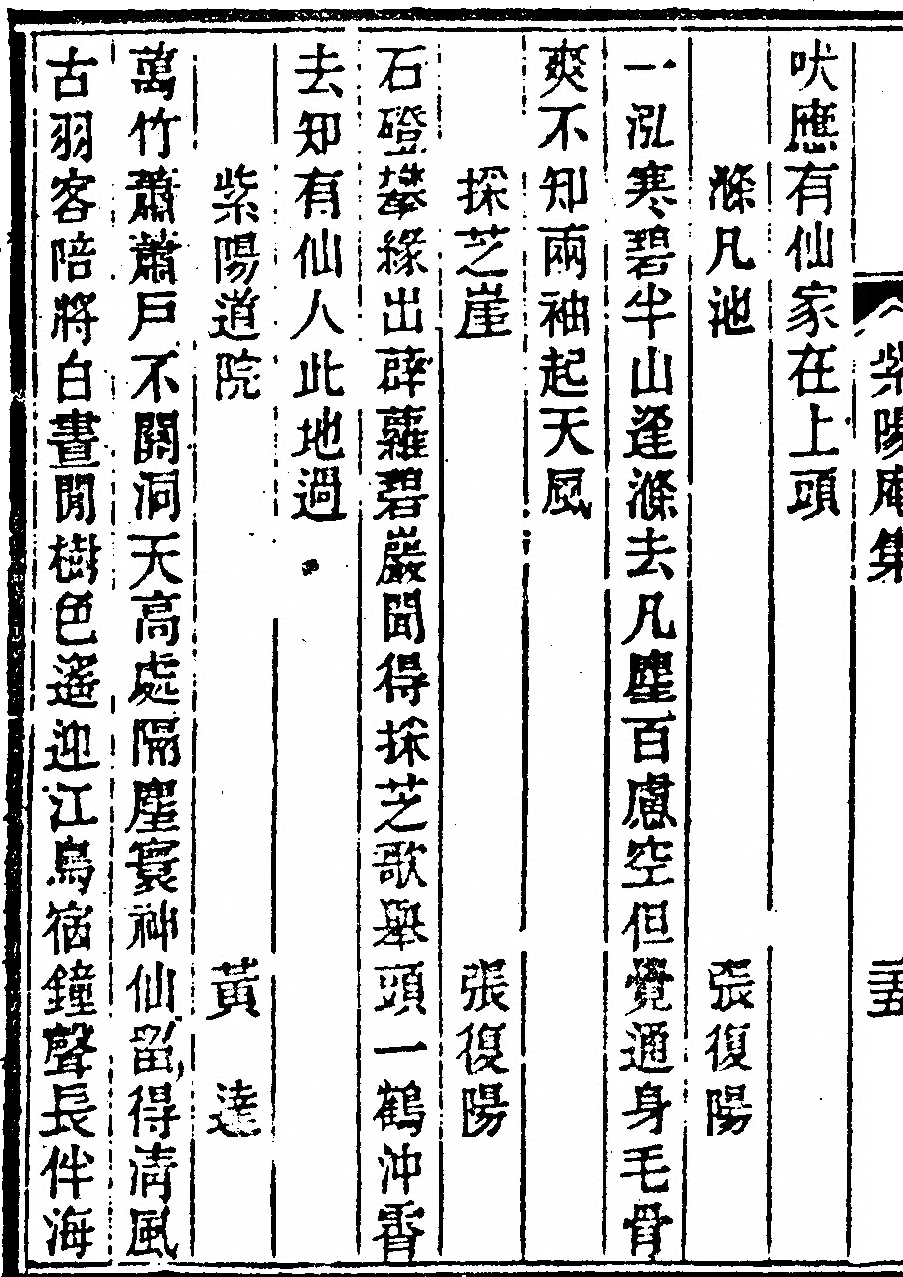 紫陽庵集
吠應有仙家在上頭
滌凡池 張復陽
一泓寒碧半山逢滌去凡塵百慮空但覺通身毛骨
爽不知兩袖起天風
採芝崖 張復陽
石磴攀緣出薜蘿碧巖聞得採芝歌舉頭一鶴沖霄
去知有仙人此地過
紫陽道院 黃達
萬竹蕭蕭戶不關洞天高處隔塵寰神仙留得淸風
古羽客陪將白晝閒樹色遙迎江鳥宿鐘聲長伴海